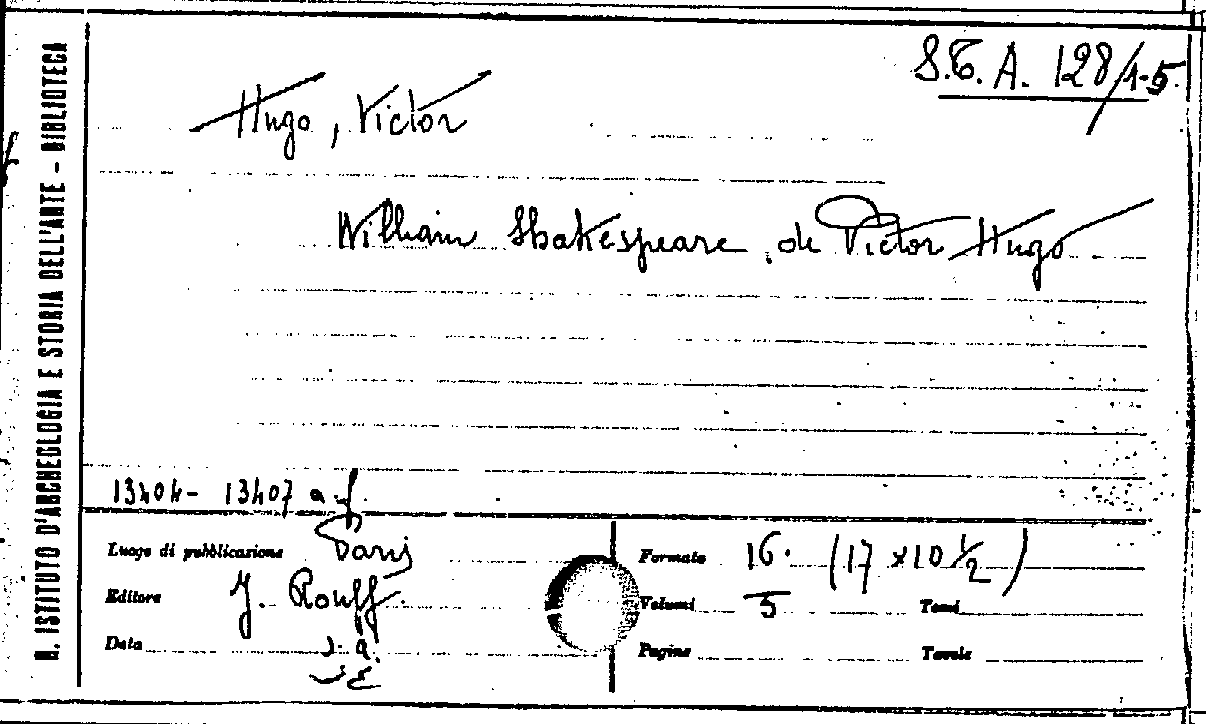 R. ISTITUTO D'ARCHEOLOGIA E STORIA DELL'ARTE - BIBLIOTECA
S.T. A. 128/1-5
Hugo, Victor
William Shakespeare, de Victor Hugo
13404- 13407 a f.
Luogo di pubblicazione Paris
Formato 16. (17 x10 1/2)
Editore J. Rouff.
Volumi 5 Tomi
Data s. a.
Pagine Tavole